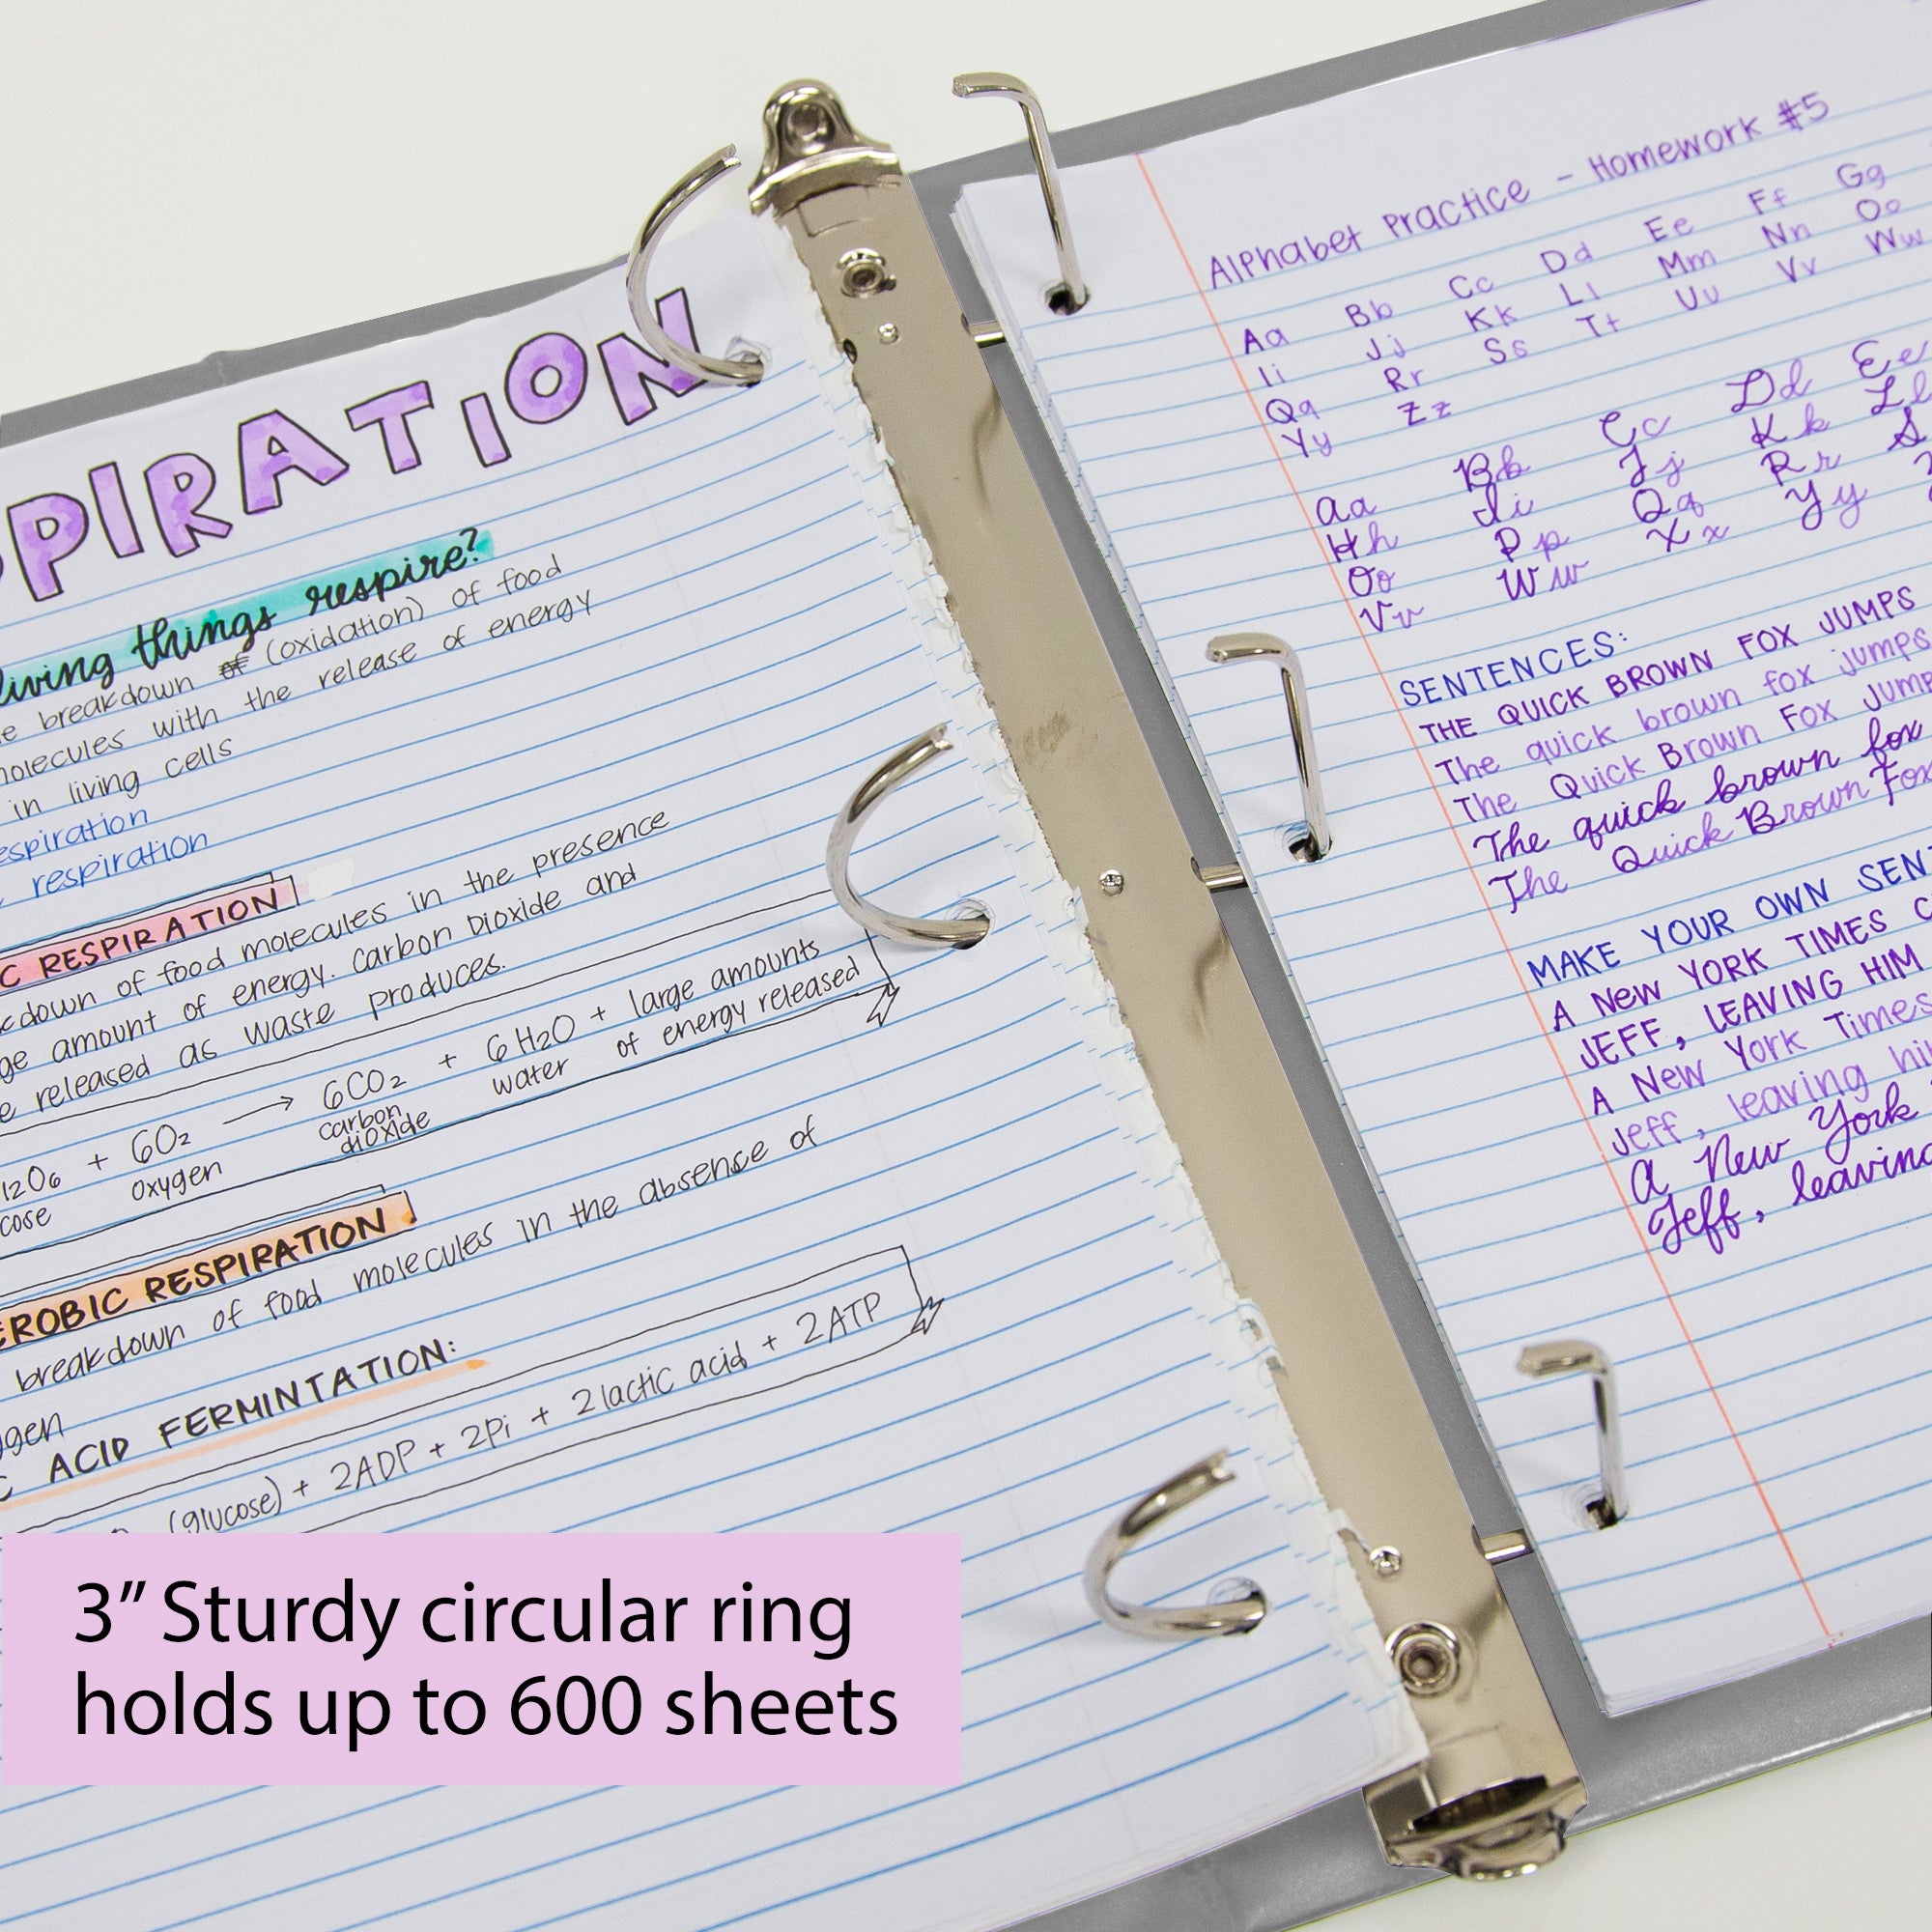 PIRATION
living things respire?
breakdown of (oxidation) of food
molecules with the release of energy
in living cells
respiration
respiration
C RESPIRATION
kdown of food molecules in the presence
ge amount of energy. carbon Dioxide and
e released as waste produces.
12O6 + 6O2 → 6CO2 + 6H2O + large amounts
cose oxygen carbon dioxide water of energy released
EROBIC RESPIRATION
breakdown of food molecules in the absence of
ygen
C ACID FERMINTATION:
(glucose) + 2ADP + 2Pi + 2lactic acid + 2ATP
Alphabet Practice - Homework #5
Aa Bb Cc Dd Ee Ff Gg
Ii Jj Kk Ll Mm Nn Oo
Qq Rr Ss Tt Uu Vv Ww
Yy Zz
Aa Bb Cc Dd Ee
Hh Ii Jj Kk Ll
Oo Pp Qq Rr S
Vv Ww Xx Yy
SENTENCES:
THE QUICK BROWN FOX JUMPS
The quick brown fox jumps
The Quick Brown Fox Jump
The quick brown fox
The Quick Brown Fox
MAKE YOUR OWN SENT
A NEW YORK TIMES C
JEFF, LEAVING HIM
A New York Times
Jeff, leaving hi
A New York
Jeff, leaving
3" Sturdy circular ring
holds up to 600 sheets